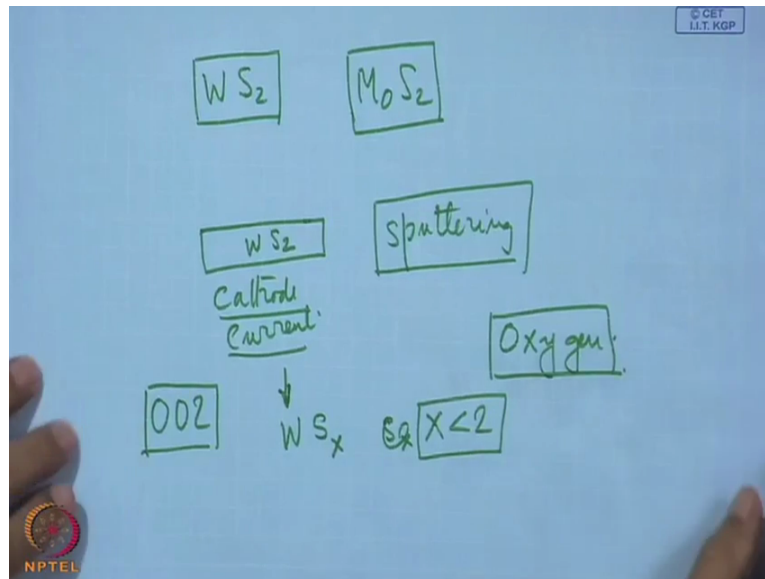 © CET
I.I.T. KGP
WS₂
MoS₂
WS₂
Sputtering
Cathode
Current.
Oxygen.
002
WSₓ
X<2
NPTEL